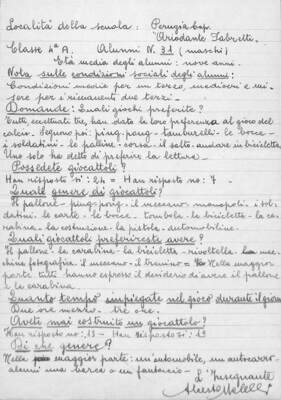 Località della scuola: Perugia Cap.
"Ariodante Fabretti"
Classe 4ª A. Alunni N. 31 (maschi)
Età media degli alunni: nove anni.
Nota sulle condizioni sociali degli alunni:
Condizioni medie per un terzo, mediocri e mi-
sere per i rimanenti due terzi.
Domande: Quali giochi preferite?
Tutti, eccettuati tre, han dato la loro preferenza al gioco del
calcio. Seguono poi: ping-pong - tamburelli - le bocce -
i soldatini - le palline - corsa - il salto - andare in bicicletta.
Uno solo ha detto di preferire la lettura -
Possedete giocattoli?
Han risposto sì: 24 = Han risposto no: 7
Quale genere di giocattoli?
Il pallone - ping-pong - il meccano - monopoli - i sol-
datini - le carte - le bocce - tombola - la bicicletta - la ca-
rabina - la costruzione - la pistola - automobiline -
Quali giocattoli preferireste avere?
Il pallone - la carabina - la bicicletta - rivoltella - la mac-
china fotografica - il meccano - il trenino = Nella maggior
parte tutti hanno espresso il desiderio di avere il pallone
e la carabina.
Quanto tempo impiegate nel gioco durante il giorno
Due ore mezzo - tre ore.
Avete mai costruito un giocattolo?
Han risposto no: 13 - Han risposto sì:
Di che genere?
Nella maggior parte: un'automobile, un autocarro -
alcuni una barca o un fantoccio -
L'Insegnante